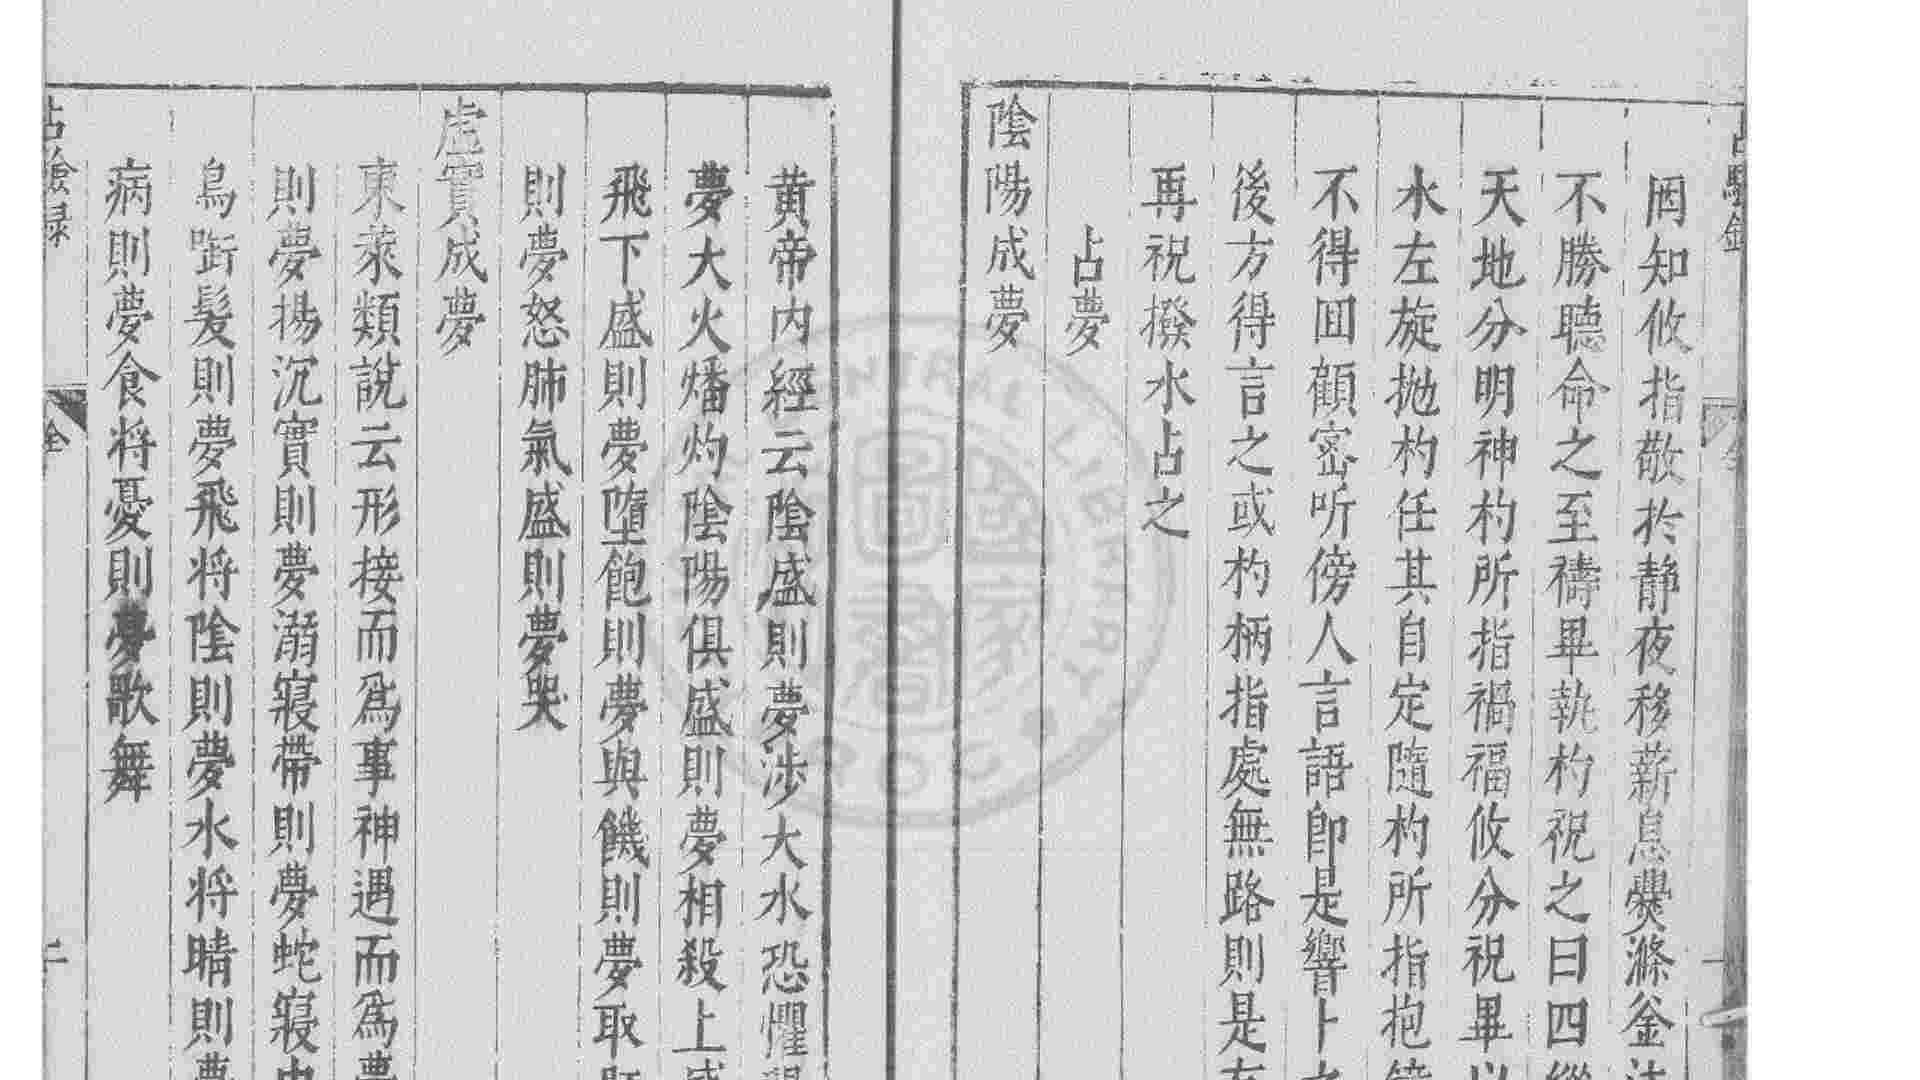 占驗錄
罔知攸指敬於靜夜移薪息爨滌釜注
不勝聽命之至禱畢執杓祝之曰四縱
天地分明神杓所指禍福攸分祝畢以
水左旋拋杓任其自定隨杓所指抱鏡
不得回顧密听傍人言語即是響卜之
後方得言之或杓柄指處無路則是有
再祝撥水占之
占夢
陰陽成夢
黃帝內經云陰盛則夢涉大水恐懼
夢大火燔灼陰陽俱盛則夢相殺上盛
飛下盛則夢墮飽則夢與饑則夢取肝
則夢怒肺氣盛則夢哭
虛實成夢
東萊類說云形接而爲事神遇而爲夢
則夢揚沉實則夢溺寢帶則夢蛇寢中
鳥啣髮則夢飛將陰則夢水將晴則夢
病則夢食將憂則夢歌舞
占驗录 全 二
CENTRAL LIBRARY R.O.C.
國家圖書